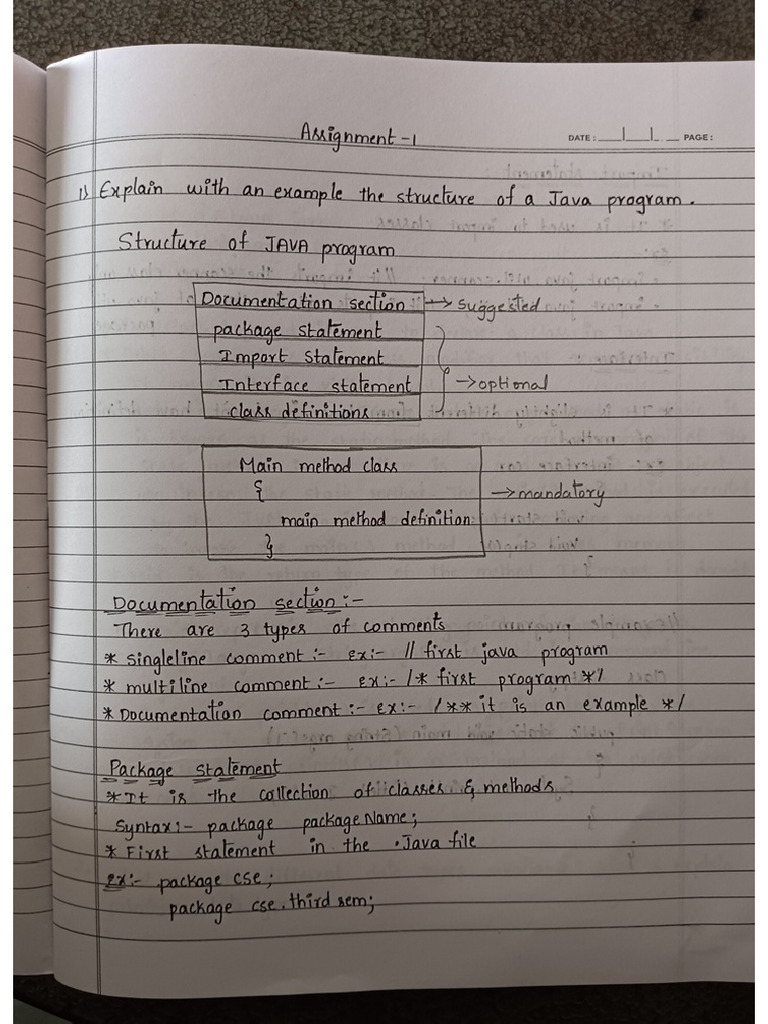 Assignment -1
DATE: PAGE:
1) Explain with an example the structure of a Java program.
Structure of JAVA program
Documentation section → suggested
package statement
Import statement
Interface statement → optional
class definitions
Main method class
{ → mandatory
main method definition
}
Documentation section :-
There are 3 types of comments
* singleline comment :- ex:- // first java program
* multiline comment :- ex:- /* first program */
* Documentation comment :- ex:- /** it is an example */
Package statement
* It is the collection of classes & methods
Syntax:- package packageName;
* First statement in the .Java file
ex:- package cse;
package cse.third sem;